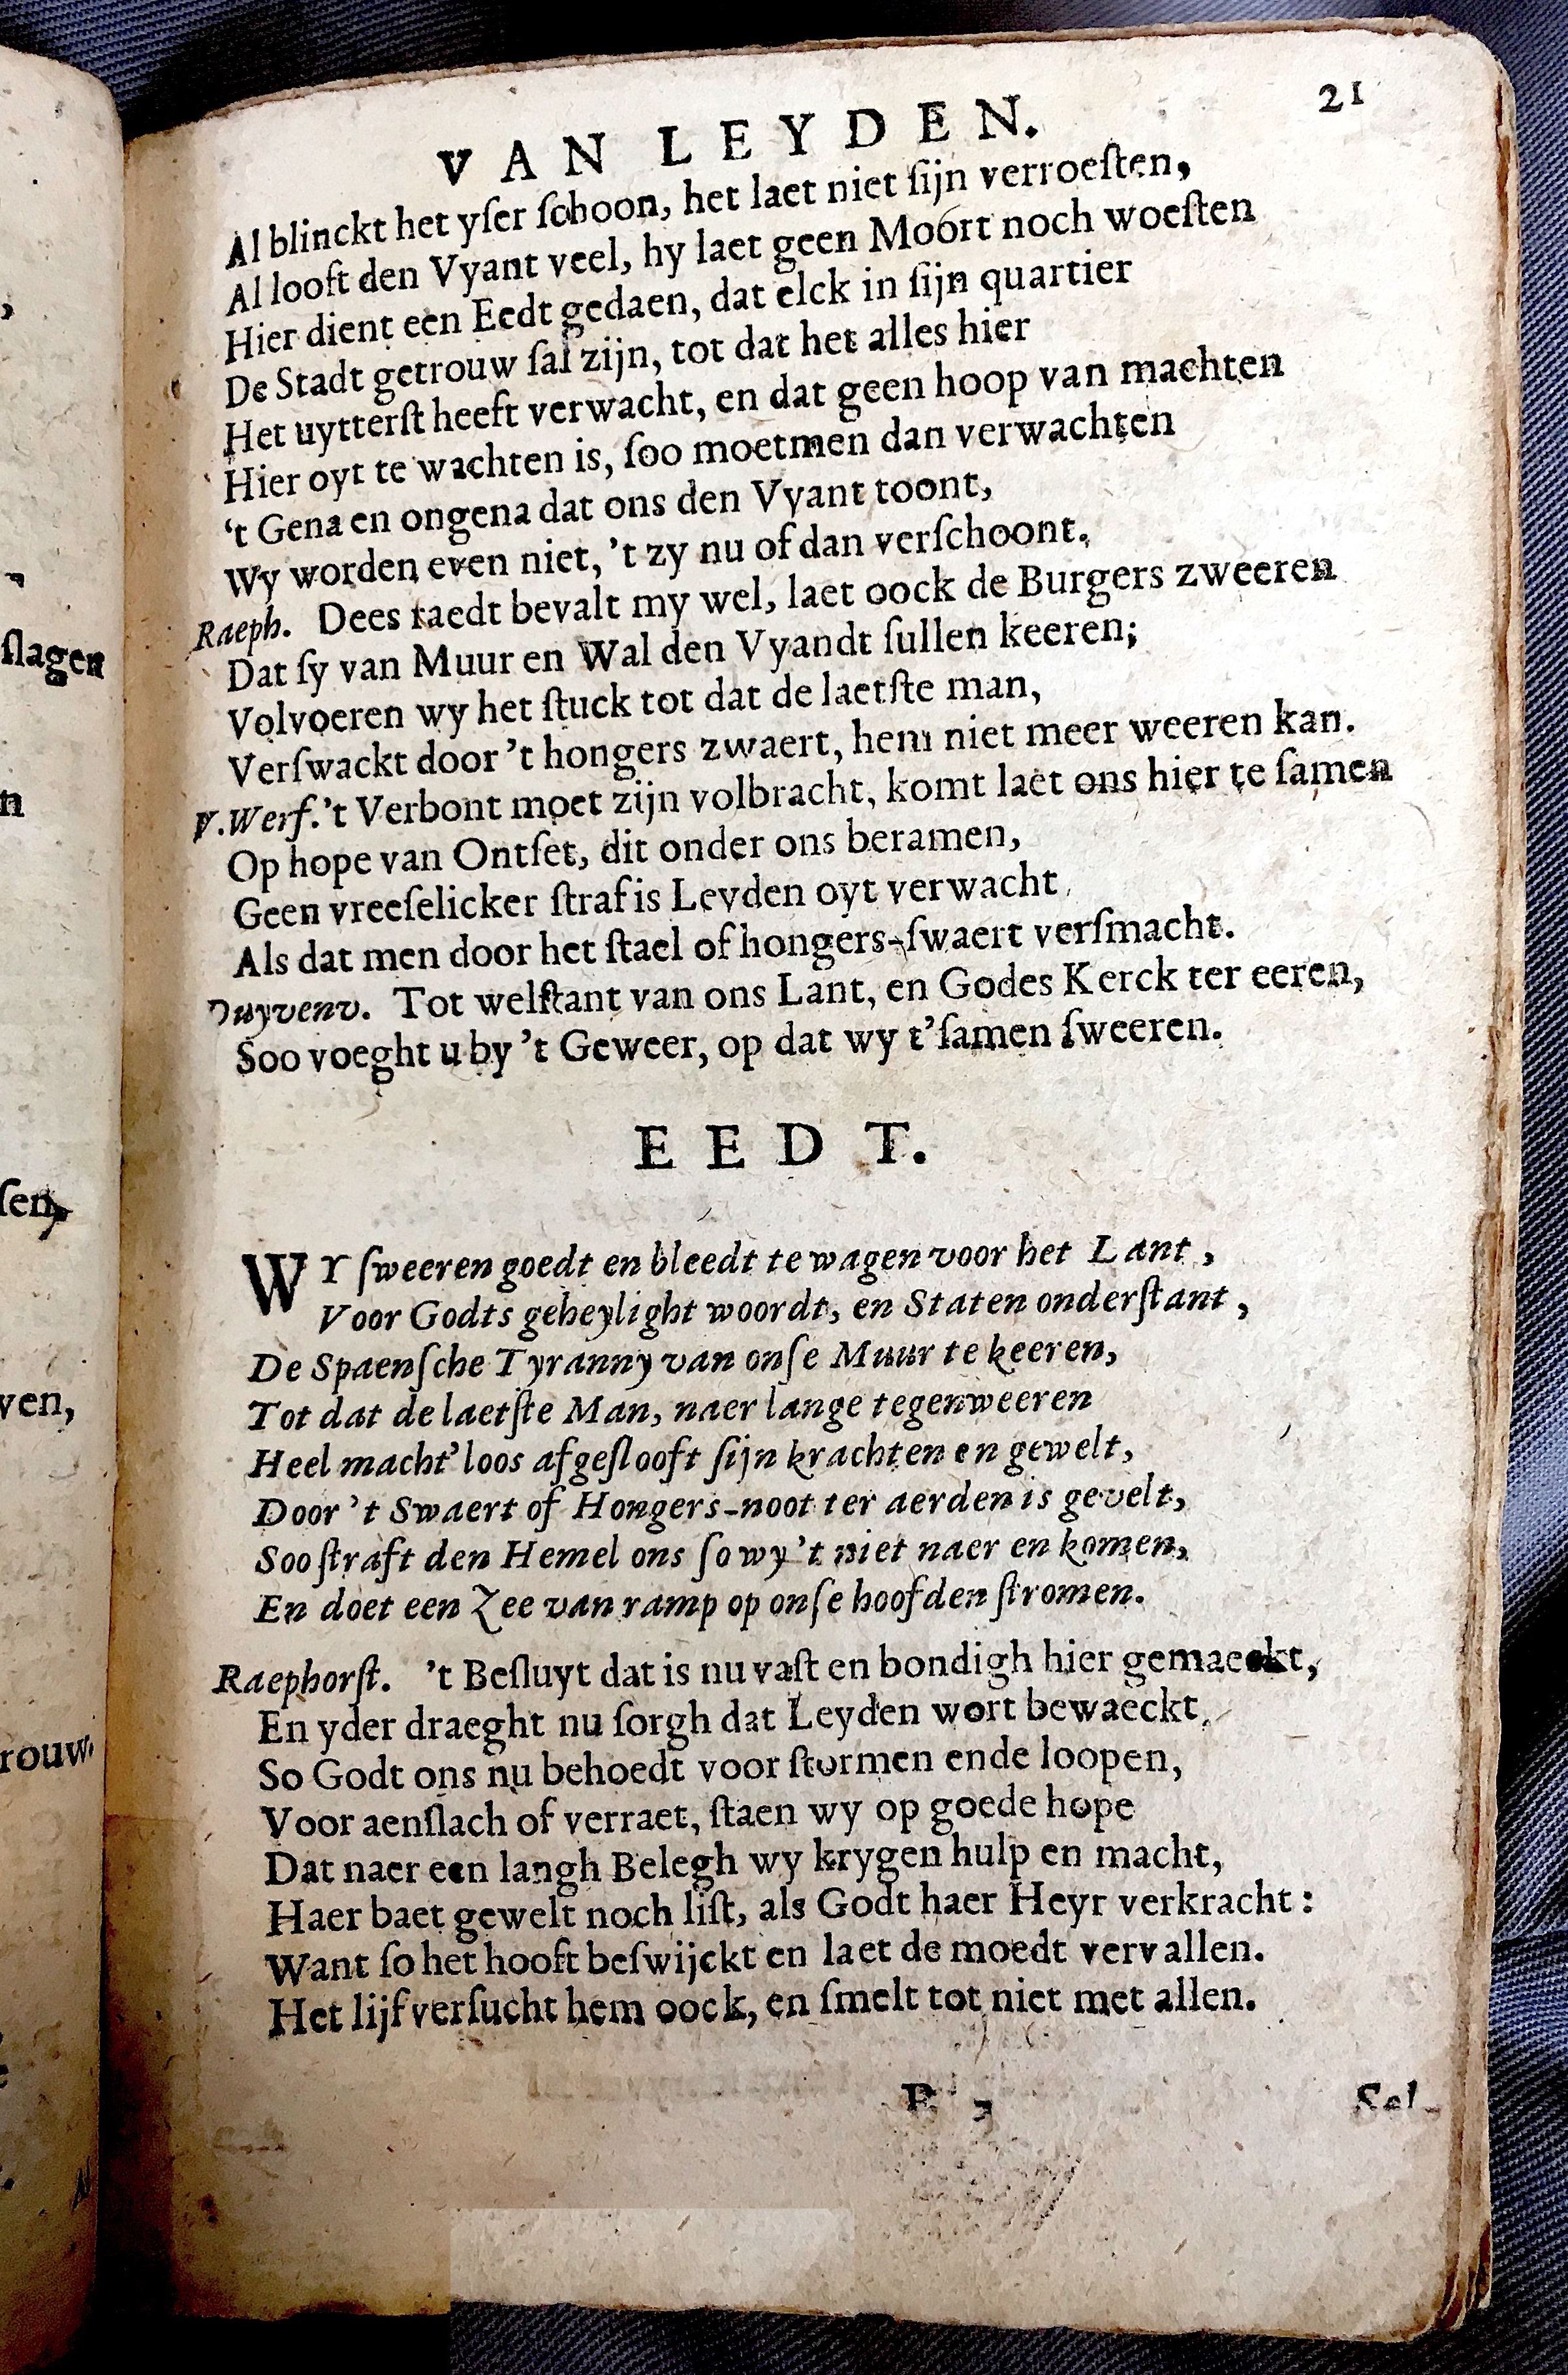 VAN LEYDEN. 21
Al blinckt het yſer ſchoon, het laet niet ſijn verroeſten,
Al looft den Vyant veel, hy laet geen Moort noch woeſten
Hier dient een Eedt gedaen, dat elck in ſijn quartier
De Stadt getrouw ſal zijn, tot dat het alles hier
Het uytterſt heeft verwacht, en dat geen hoop van machten
Hier oyt te wachten is, ſoo moetmen dan verwachten
't Gena en ongena dat ons den Vyant toont,
Wy worden even niet, 't zy nu of dan verſchoont.
Raeph. Dees raedt bevalt my wel, laet oock de Burgers zweeren
Dat ſy van Muur en Wal den Vyandt ſullen keeren;
Volvoeren wy het ſtuck tot dat de laetſte man,
Verſwackt door 't hongers zwaert, hem niet meer weeren kan.
V.Werf. 't Verbont moet zijn volbracht, komt laet ons hier te ſamen
Op hope van Ontſet, dit onder ons beramen,
Geen vreeſelicker ſtraf is Leyden oyt verwacht
Als dat men door het ſtael of hongers-ſwaert verſmacht.
Duyvenv. Tot welſtant van ons Lant, en Godes Kerck ter eeren,
Soo voeght u by 't Geweer, op dat wy t'ſamen ſweeren.
EEDT.
WY ſweeren goedt en bleedt te wagen voor het Lant,
Voor Godts geheylight woordt, en Staten onderſtant,
De Spaenſche Tyranny van onſe Muur te keeren,
Tot dat de laetſte Man, naer lange tegenweeren
Heel macht'loos afgeſlooft ſijn krachten en gewelt,
Door 't Swaert of Hongers-noot ter aerden is gevelt,
Soo ſtraft den Hemel ons ſo wy 't niet naer en komen,
En doet een Zee van ramp op onſe hoofden ſtromen.
Raephorſt. 't Beſluyt dat is nu vaſt en bondigh hier gemaeckt,
En yder draeght nu ſorgh dat Leyden wort bewaeckt,
So Godt ons nu behoedt voor ſtormen ende loopen,
Voor aenſlach of verraet, ſtaen wy op goede hope
Dat naer een langh Belegh wy krygen hulp en macht,
Haer baet gewelt noch liſt, als Godt haer Heyr verkracht:
Want ſo het hooft beſwijckt en laet de moedt vervallen.
Het lijf verſucht hem oock, en ſmelt tot niet met allen.
Sel-